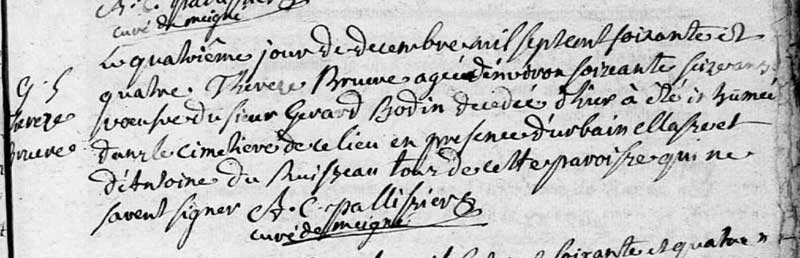 A. C. pallissier
curé de meigné
Le quatrième jour de decembre mil septcent soixante et
quatre Thereze Bruere agée d'environ soixante seize ans
g. S
Thereze
Bruere
voeufve du sieur Gerard Bodin decedée d'hier à été inhumée
dans le cimetiere de ce lieu en presence d'urbain et
d'Antoine du Ruisseau tous de cette paroisse qui ne
savent signer A. C. pallissier
curé de meigné
soixante et quatre